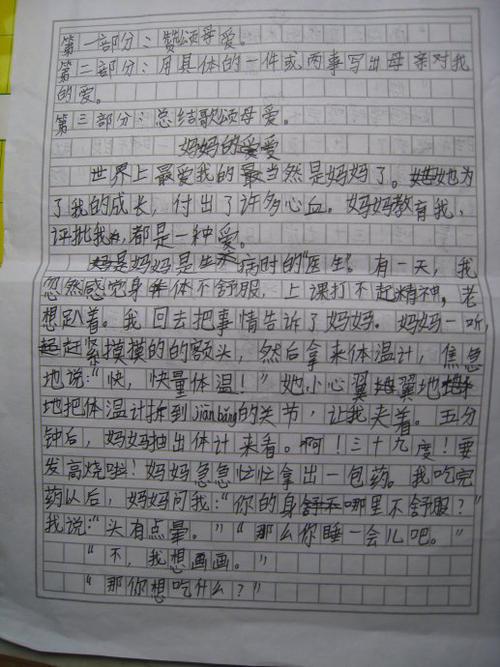 第一部分：赞颂母爱。
第二部分：用具体的一件或两事写出母亲对我
的爱。
第三部分：总结歌颂母爱。
妈妈的爱
世界上最爱我的最当然是妈妈了。她为
了我的成长，付出了许多心血。妈妈教育我，
评批我，都是一种爱。
妈妈是 病时的"医生"。有一天，我
忽然感觉身体不舒服，上课打不起精神，老
想趴着。我回去把事情告诉了妈妈。妈妈一听，
赶紧摸摸的的额头，然后拿来体温计，焦急
地说："快，快量体温！"她小心翼翼地
地把体温计 到jiānbǎng的关节，让我夹着。五分
钟后，妈妈抽出体计来看。啊！三十九度！要
发高烧啦！妈妈急急忙忙拿出一包药。我吃完
药以后，妈妈问我："你的身哪里不舒服？"
我说："头有点晕。""那么你睡一会儿吧。"
"不，我想画画。"
"那你想吃什么？"